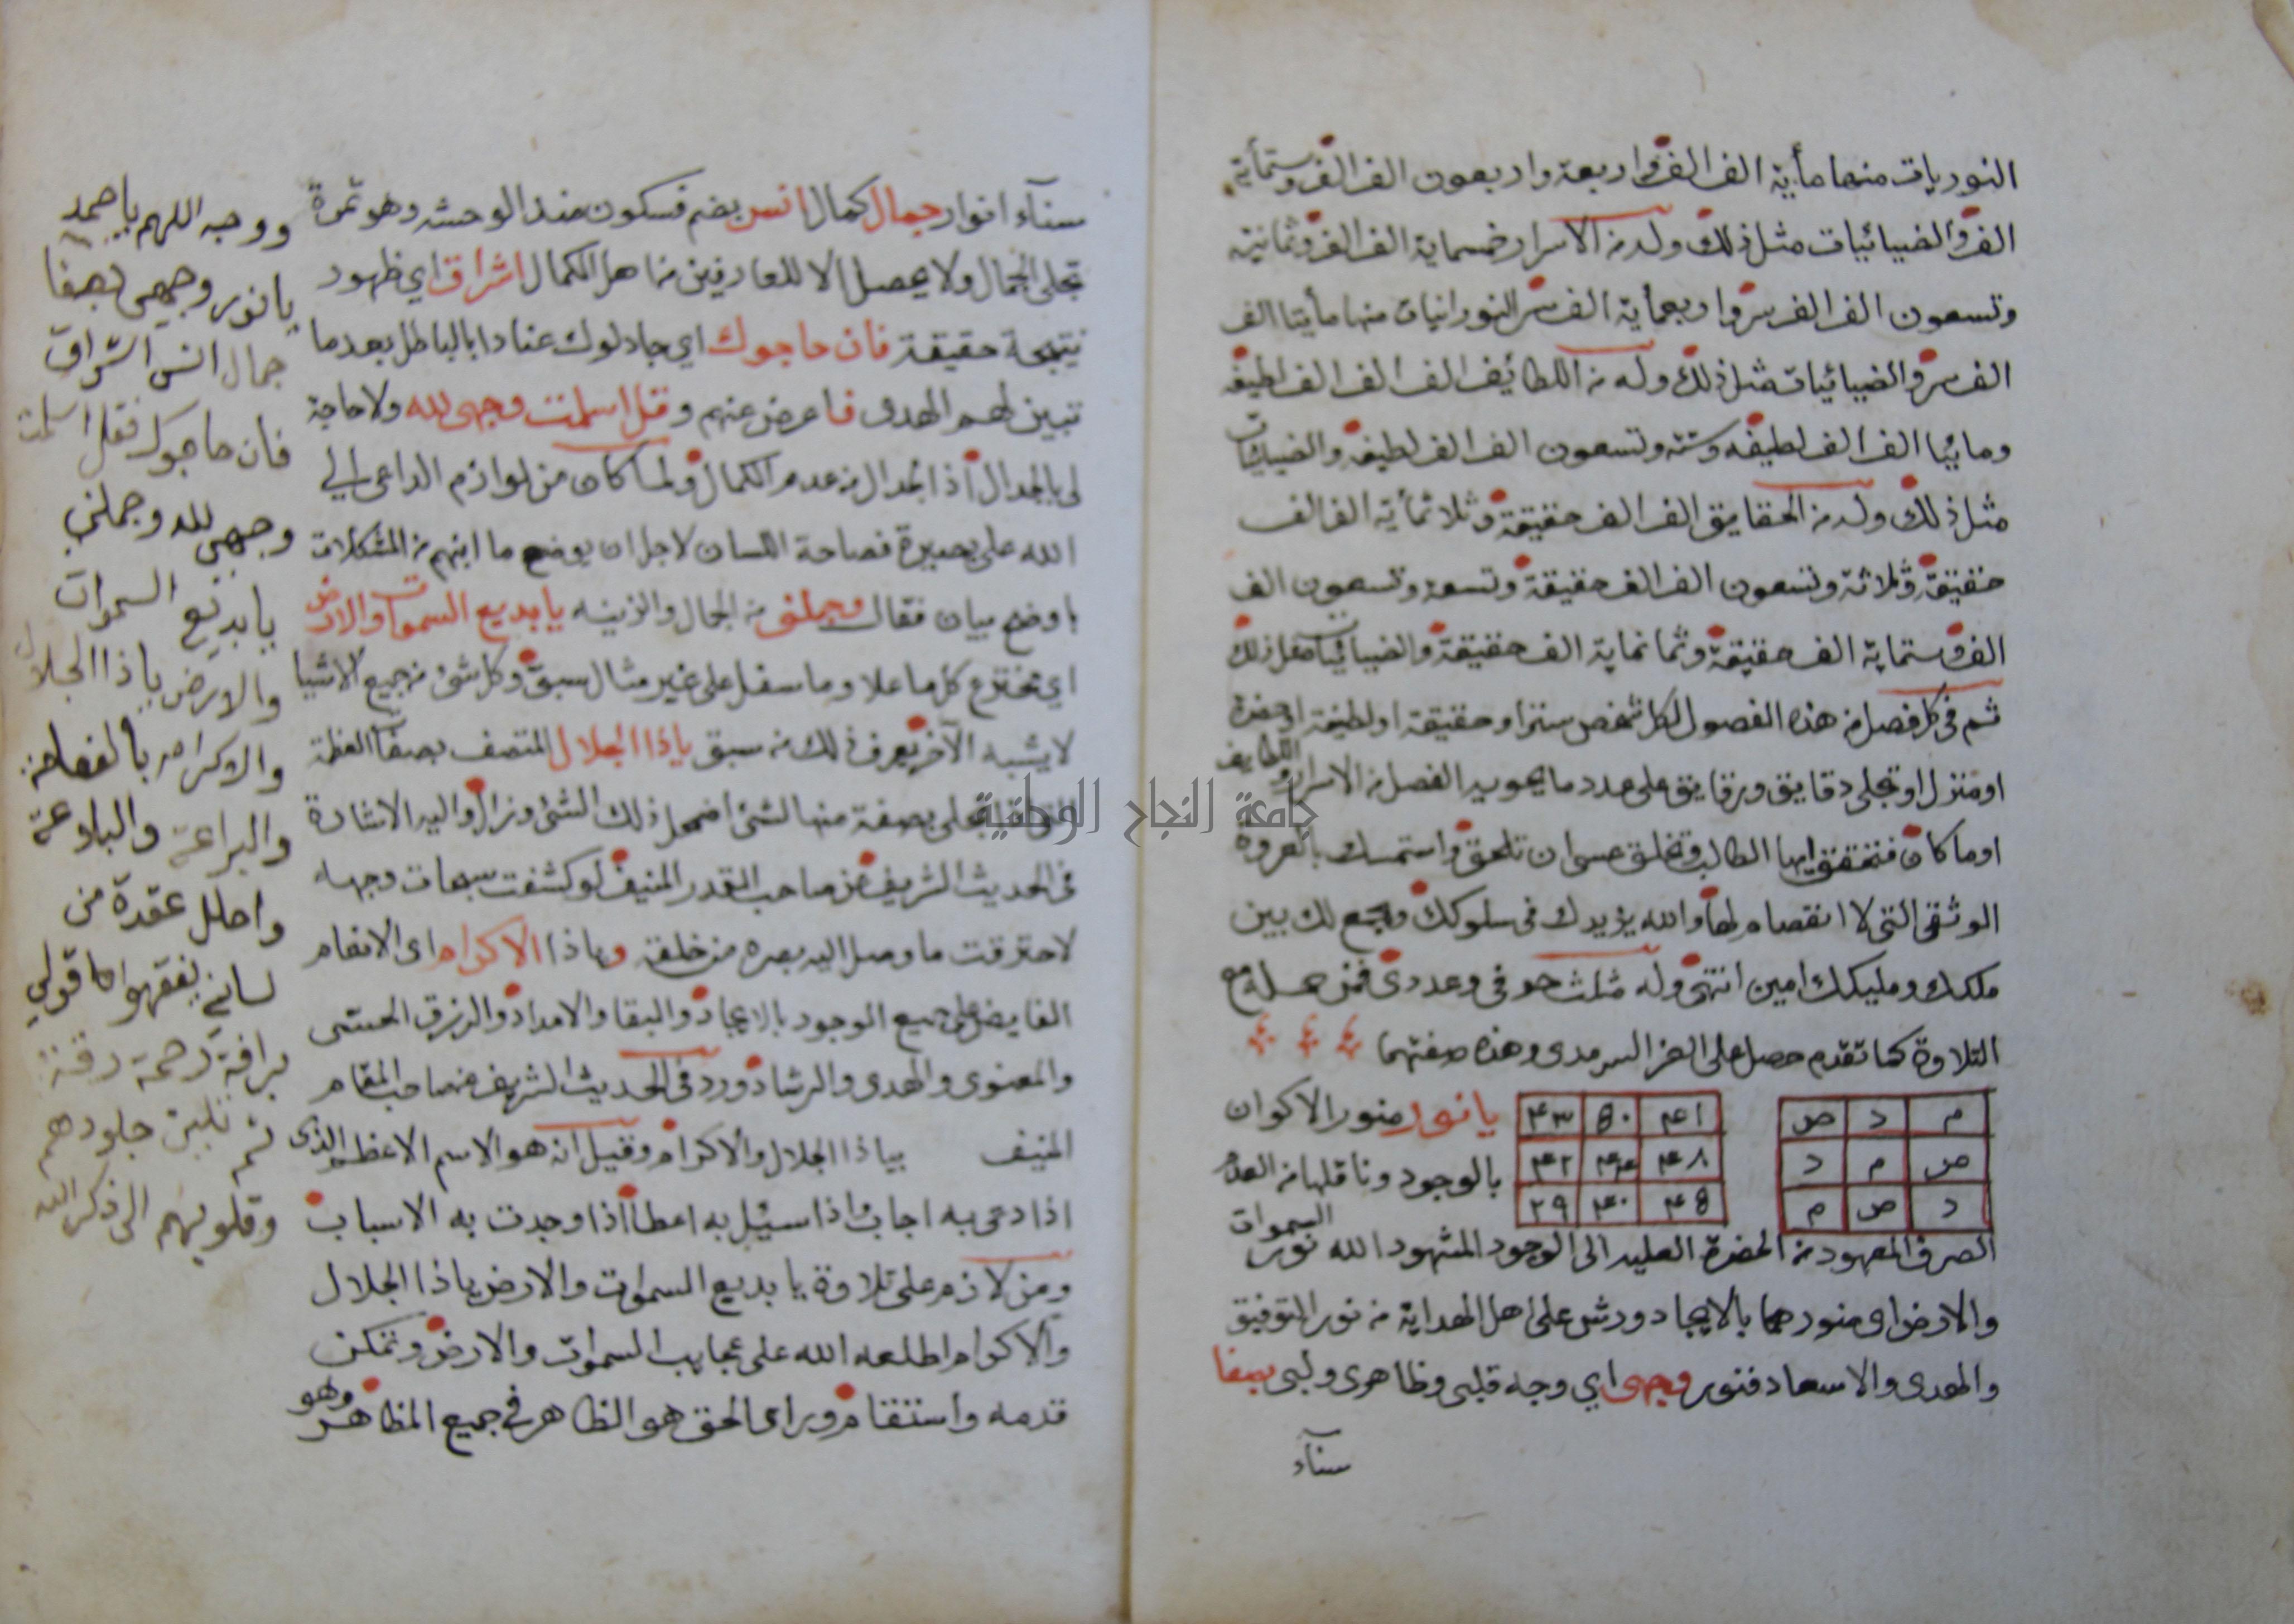 النوريات منها مأية الف الف واربعة واربعون الف الف وستمأية
الف والضيائيات مثل ذلك وله من الاسرار خمسماية الف الف وثمانية
وتسعون الف الف سر واربعمأية الف سر النورانيات منها مأيتا الف
الف سر والضيائيات مثل ذلك وله من اللطائف الف الف الف لطيفه
ومايتا الف الف لطيفه وسته وتسعون الف الف لطيفه والضيائيات
مثل ذلك وله من الحقايق الف الف حقيقة وثلاثمأية الف الف
حقيقة وثلاثة وتسعون الف الف حقيقة وتسعة وتسعون الف
الف وستماية الف حقيقة وثمانماية الف حقيقة والضيائيات مثل ذلك
ثم في كل فصل من هذه الفصول لكل شخص سترا وحقيقة او لطيفة او حضرة
او منزل او تجلى دقايق ورقايق على عدد ما يحويه الفصل من الاسرار واللطايف
او ما كان فتحقق ايها الطالب وتخلق عسى ان تلحق واستمسك بالعروة
الوثقى التى لا انفصام لها والله يؤيدك فى سلوكك ويجمع لك بين
ملكك ومليكك امين انتهى وله مثلث حرفى وعددى فمن حمله مع
التلاوة كما تقدم حصل على العز السرمدى وهذه صفتهما
م د ص
ص م د
د ص م
٤١ ٥٠ ٤٣
٤٨ ٤٤ ٤٢
٤٥ ٤٠ ٢٩
يا نور منور الاكوان
بالوجود وناقلها من العدم
الصرف المعهود من الحضرة العليه الى الوجود المشهود الله نور السموات
والارض اى منورهما بالايجاد ورش على اهل الهداية من نور التوفيق
والهدى والاسعاد فنور وجهى اي وجه قلبى وظاهرى ولبى بصفا
سنآء
سنآء انوار جمال كمال انس بضم فسكون ضد الوحشه وهو ثمرة
تجلى الجمال ولا يحصل الا للعارفين من اهل الكمال اشراق اي ظهور
نتيجة حقيقة فان حاجوك اي جادلوك عنادا بالباطل بعد ما
تبين لهم الهدى فاعرض عنهم وقل اسلمت وجهى لله ولا حاجة
لى بالجدال اذ الجدال من عدم الكمال ولما كان من لوازم الداعى الي
الله على بصيرة فصاحة اللسان لاجل ان يوضح ما ابهم من المشكلات
باوضح بيان فقال وجملنى من الجمال والزينه يا بديع السموات والارض
اى مخترع كل ما علا وما سفل على غير مثال سبق وكل شئ من جميع الاشيا
لا يشبه الآخر يعرف ذلك من سبق ياذا الجلال المتصف بصفات العظمة
التى لو تجلى بصفة منها لشئ اضمحل ذلك الشئ وزال واليه الاشارة
فى الحديث الشريف عن صاحب القدر المنيف لو كشفت سبحات وجهه
لاحترقت ما وصل اليه بصره من خلقه وياذا الاكرام اى الانعام
الفايض على جميع الوجود بالايجاد والبقا والامداد والرزق الحسى
والمعنوى والهدى والرشاد وورد فى الحديث الشريف عن صاحب المقام
المنيف بياذا الجلال والاكرام وقيل انه هو الاسم الاعظم الذى
اذا دعى به اجاب واذا سئل به اعطا اذا وجدت به الاسباب
ومن لازم على تلاوة يا بديع السموات والارض ياذا الجلال
والاكرام اطلعه الله على عجايب السموات والارض وتمكن
قدمه واستقام وراى الحق هو الظاهر فى جميع المظاهر وهو
ووجه اللهم يا صمد
يا نور وجهي بصفا
جمال انس اشراق
فان حاجوك فقل اسلمت
وجهي لله وجملني
يا بديع السموات
والارض ياذا الجلال
والاكرام بالفصاحة
والبراعة والبلاغة
واحلل عقدة من
لساني يفقهوا قولي
برافة رحمة رقة
ثم تلين جلودهم
وقلوبهم الى ذكر الله
جامعة النجاح الوطنية